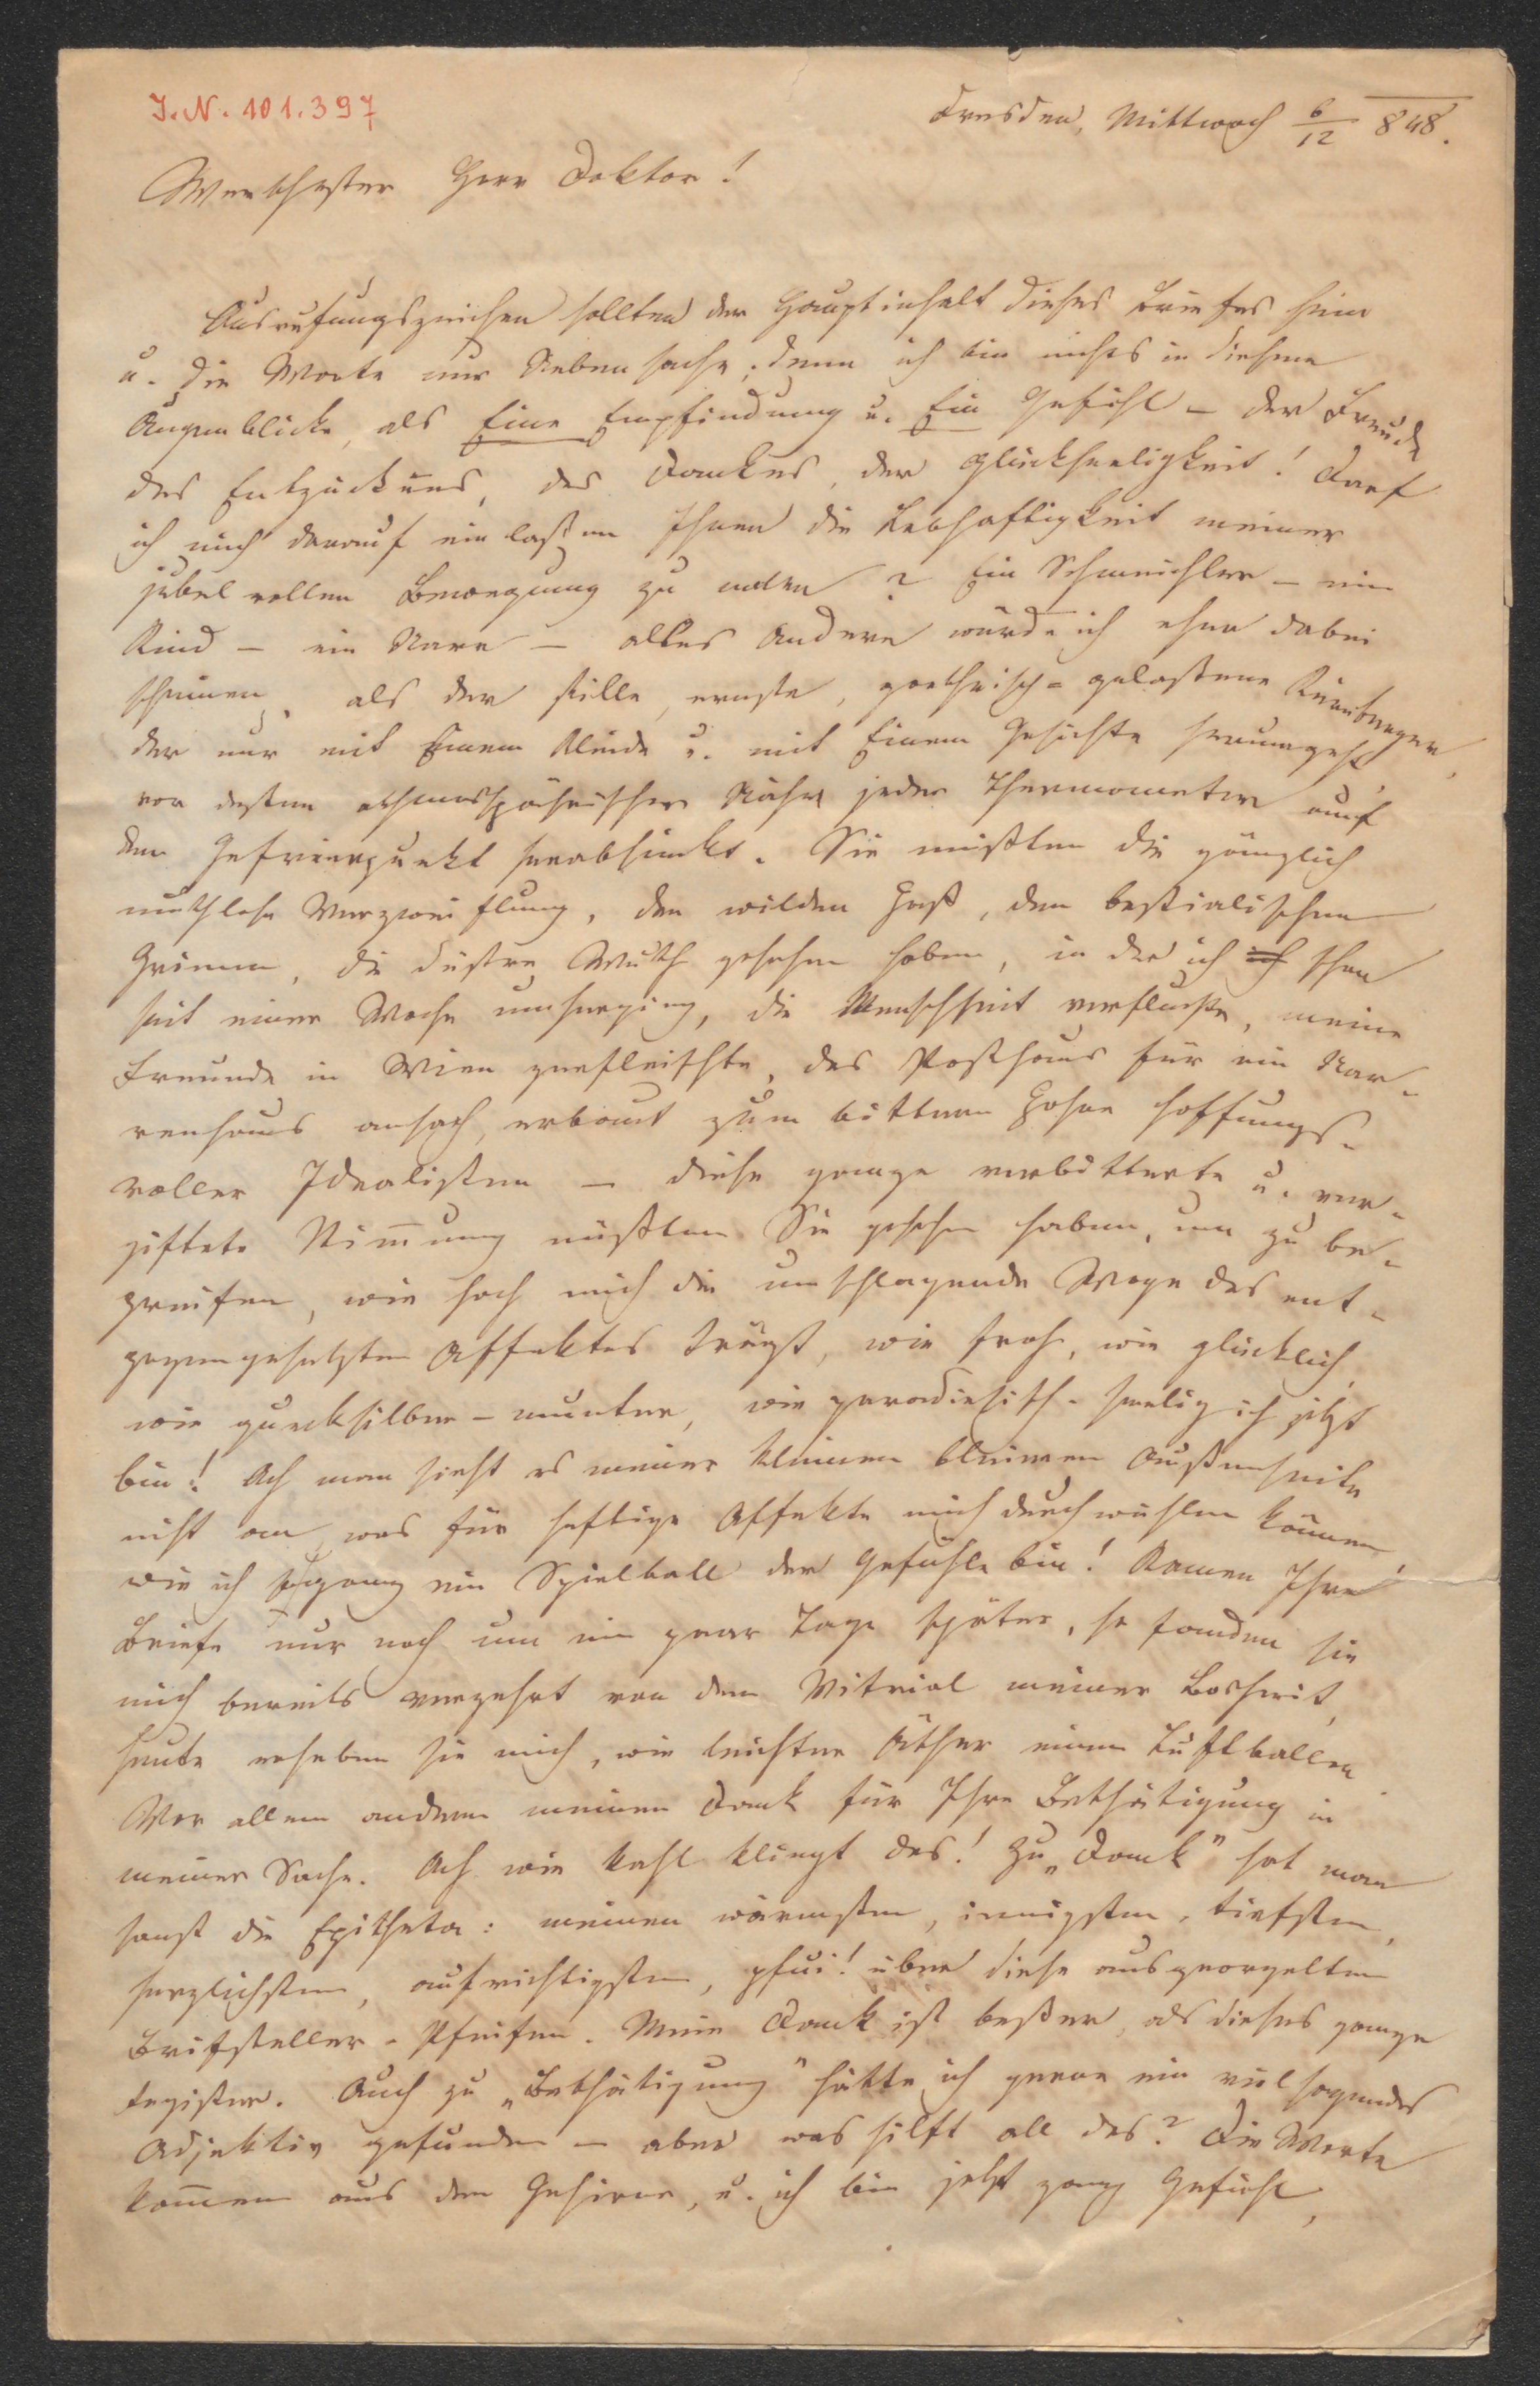 J. N. 101.397
Dresden, Mittwoch 6/12 848.
Werthester Herr Doktor!
Ausrufungszeichen sollten der Hauptinhalt dieses Briefes sein
u. die Worte nur Nebensache; denn ich bin nichts in diesem
Augenblicke, als Eine Empfindung u. Ein Gefühl – der Freude
des Entzückens, des Dankes, der Glückseeligkeit! Darf
ich mich darauf einlaßen Ihnen die Lebhaftigkeit meiner
jubelvollen Bewegung zu malen? Ein Schmeichler – ein
Kind – ein Narr – alles Andere würde ich eher dabei
scheinen, als der stille, ernste, goethisch-gelaßene Kürnberger,
der nur mit Einem Kleide u. mit Einem Gesichte herumgeht,
vor deßen athmosphärischer Nähe jeder Thermometer auf
den Gefrierpunkt herabsinkt. Sie müßten die gänzlich
muthlose Verzweiflung, den wilden Haß, den bestialischen
Grimm, die düstre Wuth gesehen haben, in der ich schon
seit einer Woche umherging, die Menschheit verfluchte, meine
Freunde in Wien zerfleischte, das Posthaus für ein Nar-
renhaus ansah, erbaut zum bittern Hohne hoffnungs-
voller Idealisten – diese ganze verbitterte u. ver-
giftete Stimmung müßten Sie gesehen haben, um zu be-
greifen, wie hoch mich die umschlagende Woge des ent-
gegengesetzten Affektes trägt, wie froh, wie glücklich,
wie quecksilber-munter, wie paradiesisch-seelig ich jetzt
bin! Ach man sieht es meiner kleinen bleiernen Außenseite
nicht an, was für heftige Affekte mich durchwühlen können,
wie ich so ganz ein Spielball der Gefühle bin! Kamen Ihre
Briefe nur noch um ein paar Tage später, so fanden sie
mich bereits verzehrt von dem Vitriol meiner Bosheit,
heute erheben sie mich, wie leichter Äther einen Luftballon.
Vor allem andern meinen Dank für Ihre Bethätigung in
meiner Sache. Ach wie kahl klingt das! Zu „Dank" hat man
sonst die Epitheta: meinen wärmsten, innigsten, tiefsten,
herzlichsten, aufrichtigsten, pfui! über diese ausgeorgelten
Briefsteller-Pfeifen. Mein Dank ist beßer, als dieses ganze
Register. Auch zu „Bethätigung" hätte ich gerne ein vielsagendes
Adjektiv gefunden – aber was hilft all das? Die Worte
kommen aus dem Gehirne, u. ich bin jetzt ganz Gefühl,